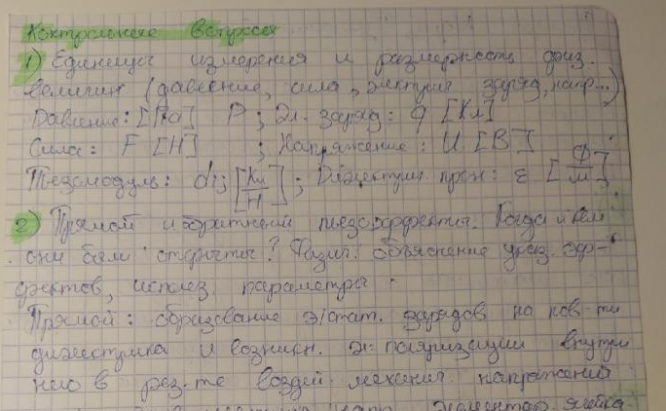 Контрольные вопросы
1) Единицы измерения и размерность физ.
величин (давление, сила, электрич заряд, напр...)
Давление: [Па] P ; Эл. заряд: q [Кл]
Сила: F [Н] ; Напряжение: U [В]
Пьезомодуль: dij [Кл/Н] ; Диэлектрич прон: ε [Ф/м]
2) Прямой и обратный пьезоэффекты. Когда и кем
они были открыты? Физич. объяснение указ. эф-
фектов, использ. параметры.
Прямой: образование э/стат. зарядов на пов-ти
диэлектрика и возникн. эл. поляризации внутри
него в рез-те воздей. механич. напряжений